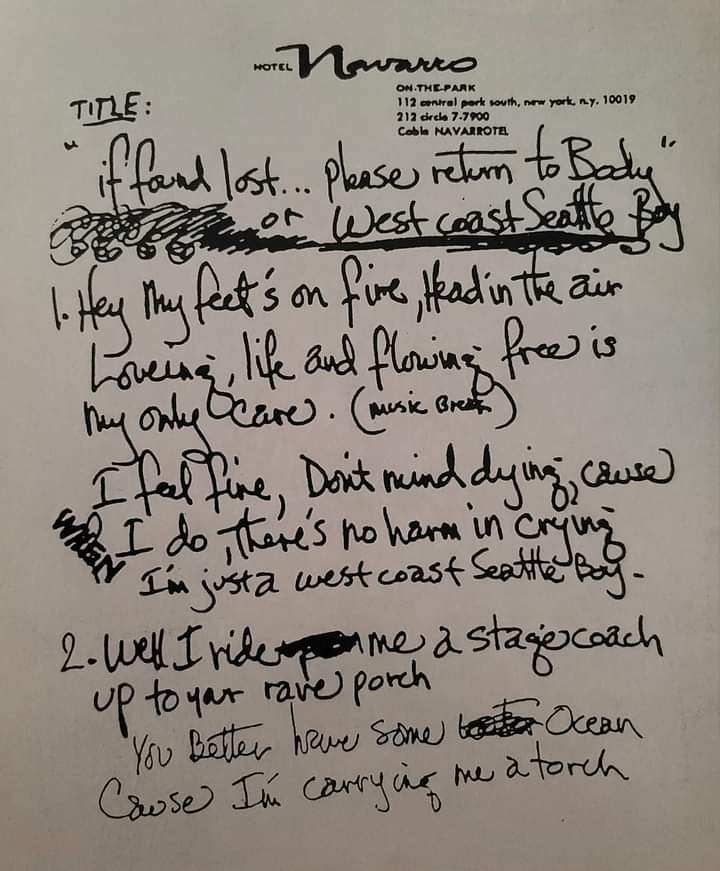 HOTEL Navarro
ON-THE-PARK
112 central park south, new york, n.y. 10019
212 circle 7-7900
Cable NAVARROTEL
TITLE:
"if found lost... please return to Body"
or West coast Seattle Boy
1. Hey My feet's on fire, Head in the air
Loveing, life and flowing free is
my only care. (music Break)
I feel fine, Don't mind dying, cause
WHEN I do, there's no harm in crying
I'm just a west coast Seattle Boy-
2. Well I ride me a stage coach
up to your rave porch
You Better have some Ocean
Cause I'm carrying me a torch